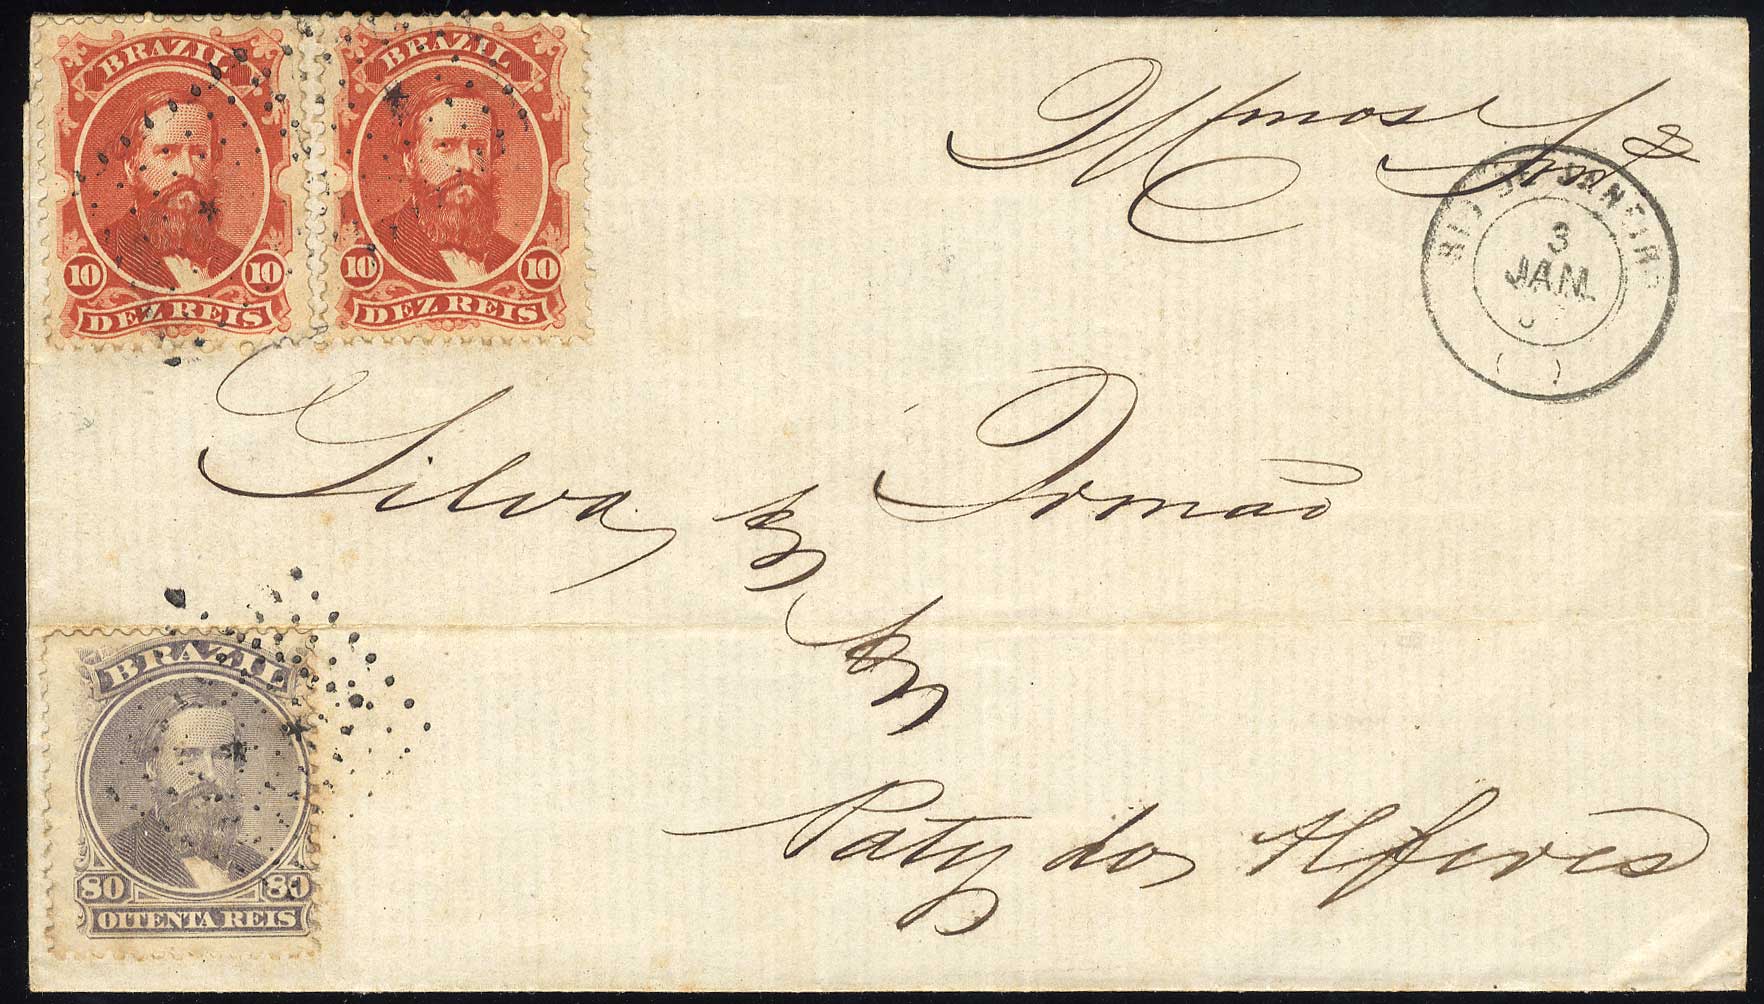 BRAZIL
10 10
DEZ REIS
BRAZIL
10 10
DEZ REIS
Illmos Snrs
RIO DE JANEIRO
3
JAN.
Silva & Irmão
Paty do Alferes
BRAZIL
80 80
OITENTA REIS